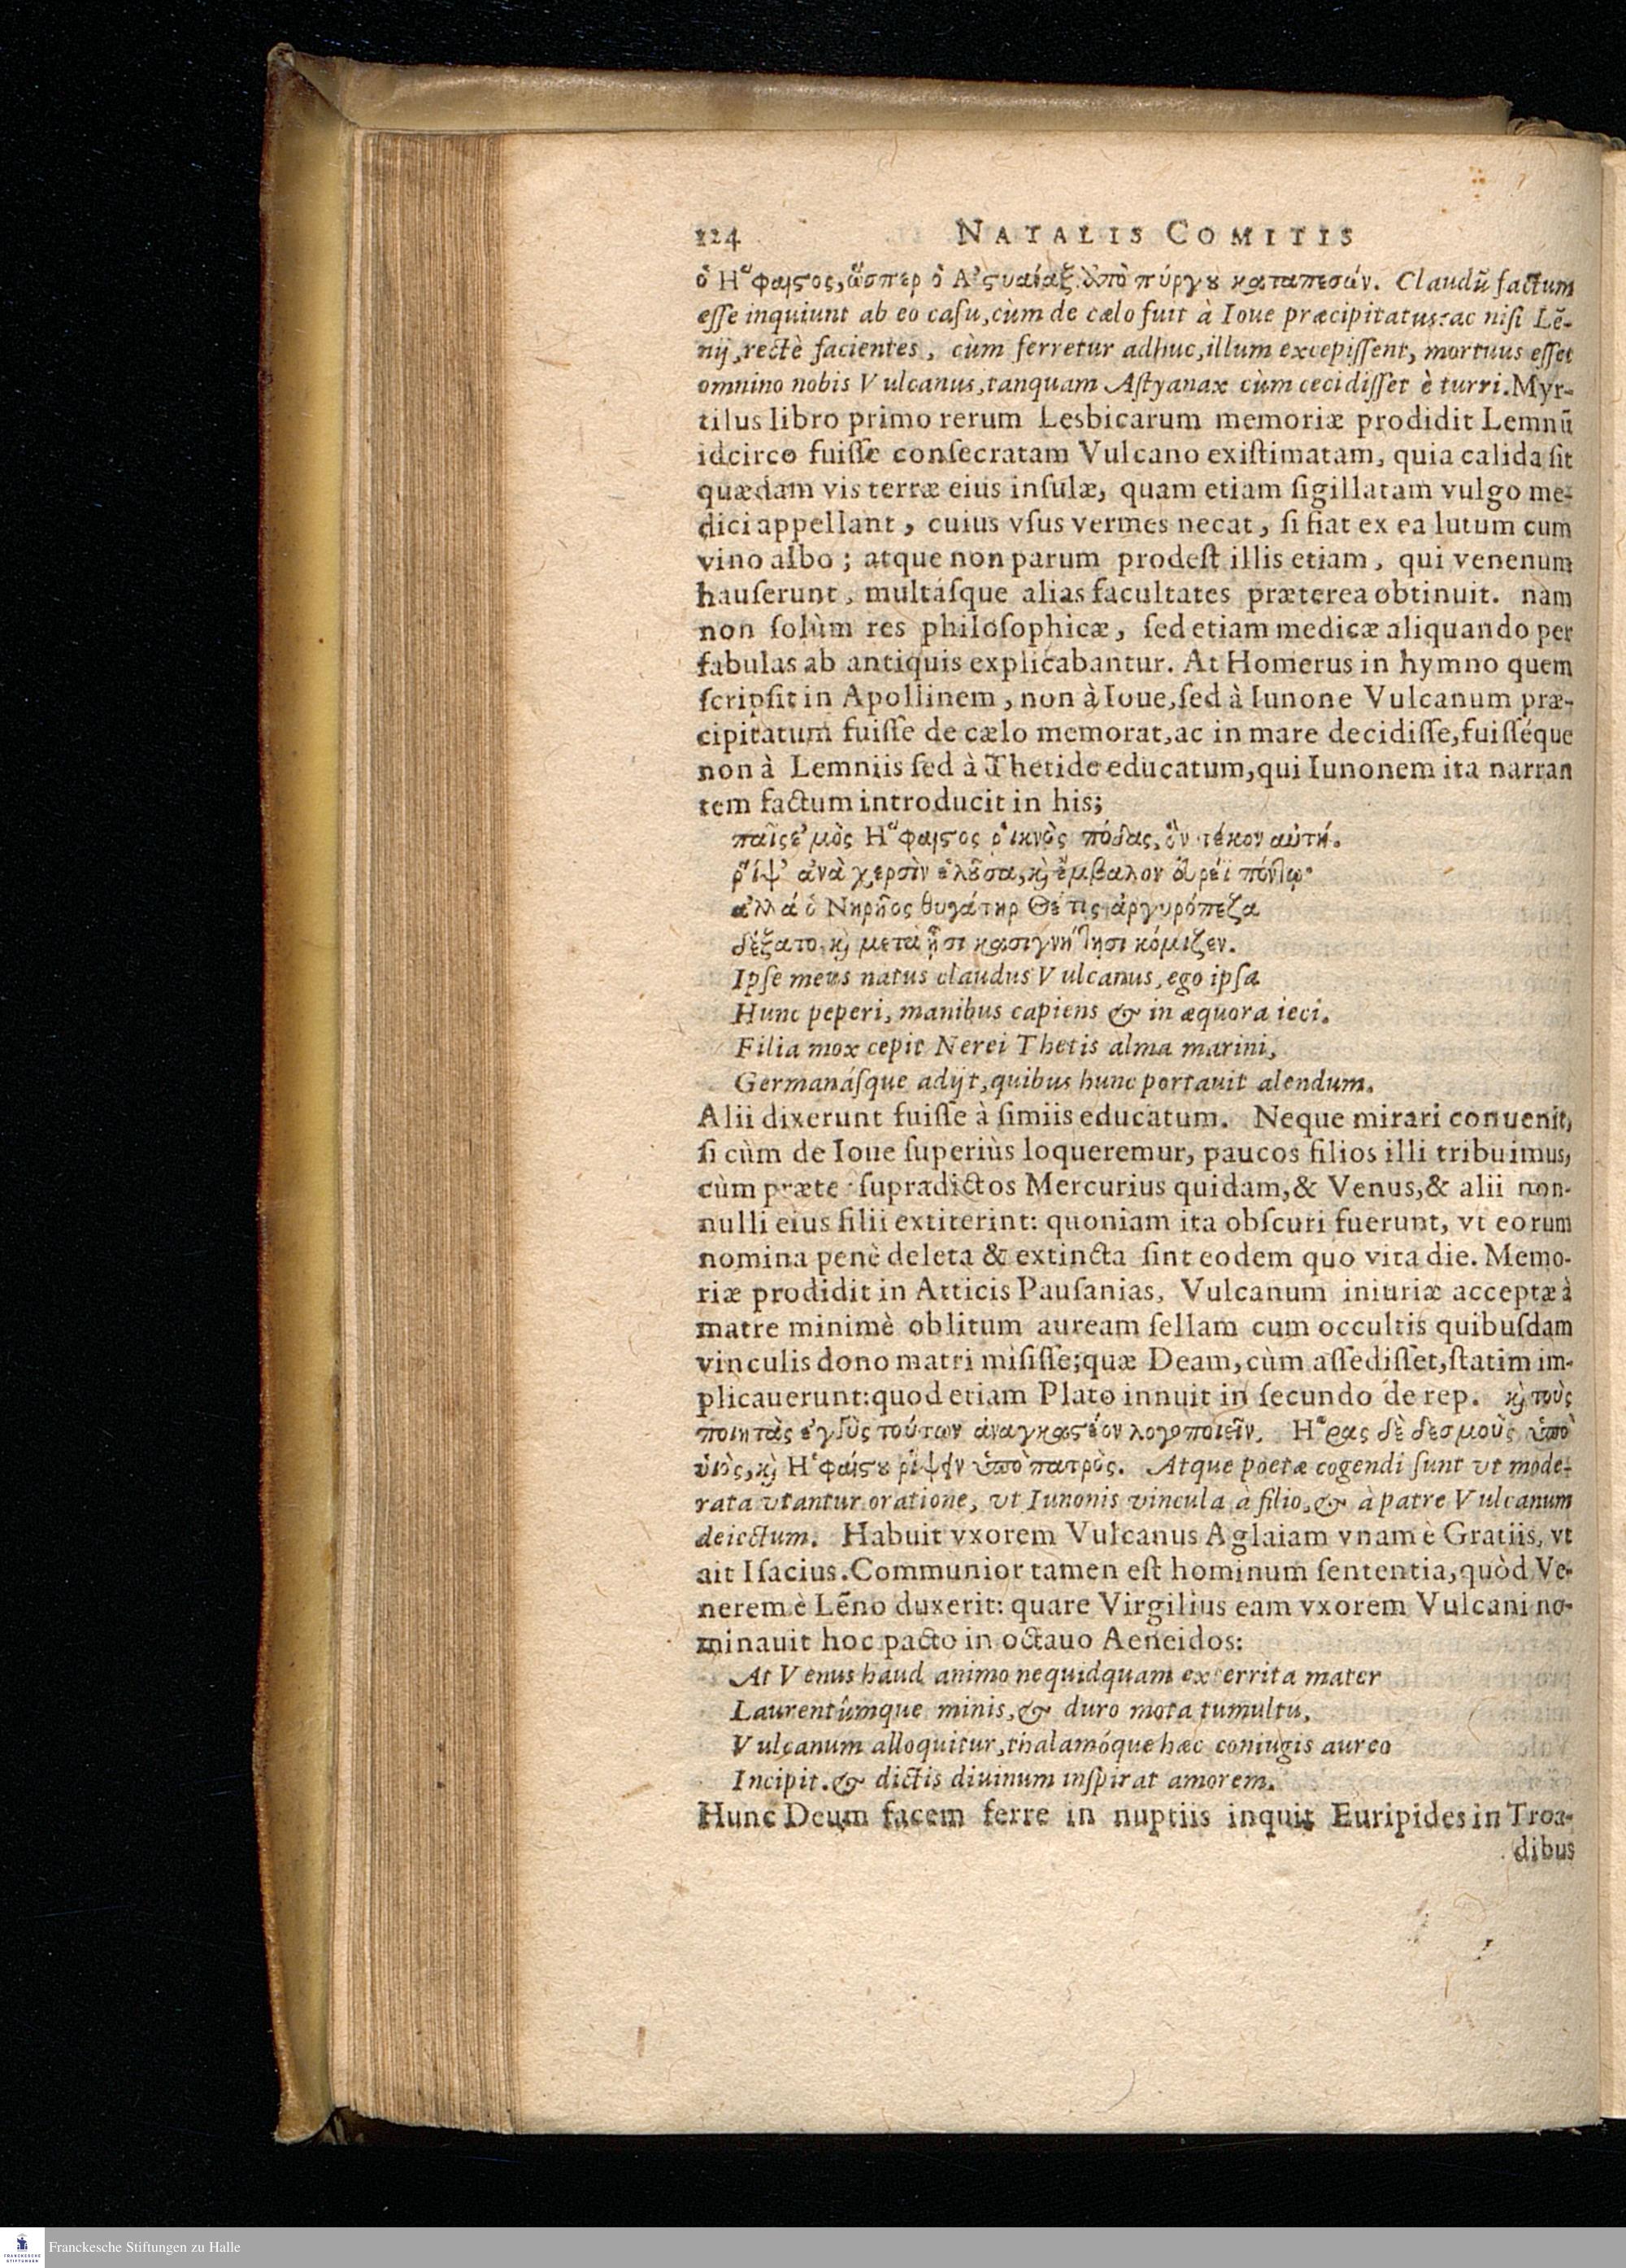 224 NATALIS COMITIS
ὁ Ηʹφαιϛος, ὥσπερ ὁ Αʹϛυάναξ ἀπὸ πύργȣ καταπεσών. Claudũ factum
eſſe inquiunt ab eo caſu, cùm de cælo fuit à Ioue præcipitatus: ac niſi Lẽ-
nij, rectè facientes, cùm ferretur adhuc, illum excepiſſent, mortuus eſſet
omnino nobis Vulcanus, tanquam Aſtyanax cùm cecidiſſet è turri. Myr-
tilus libro primo rerum Lesbicarum memoriæ prodidit Lemnũ
idcirco fuiſſe conſecratam Vulcano exiſtimatam, quia calida ſit
quædam vis terræ eius inſulæ, quam etiam ſigillatam vulgo me-
dici appellant, cuius vſus vermes necat, ſi fiat ex ea lutum cum
vino albo; atque non parum prodeſt illis etiam, qui venenum
hauſerunt, multáſque alias facultates præterea obtinuit. nam
non ſolùm res philoſophicæ, ſed etiam medicæ aliquando per
fabulas ab antiquis explicabantur. At Homerus in hymno quem
ſcripſit in Apollinem, non à Ioue, ſed à Iunone Vulcanum præ-
cipitatum fuiſſe de cælo memorat, ac in mare decidiſſe, fuiſſéque
non à Lemniis ſed à Thetide educatum, qui Iunonem ita narran
tem factum introducit in his;
παῖς ἐμὸς Ηʹφαιϛος ῥικνὸς πόδας, ὃν τέκον αὐτή.
ῥίψ' ἀνὰ χερσὶν ἑλȣ͂σα, ϗ ἔμβαλον εὐρέϊ πόντῳ·
ἀλλά ὁ Νηρῆος θυγάτηρ Θέτις ἀργυρόπεζα
δέξατο, ϗ μετὰ ᾗσι κασιγνήτησι κόμιζεν.
Ipſe meus natus claudus Vulcanus, ego ipſa
Hunc peperi, manibus capiens & in æquora ieci.
Filia mox cepit Nerei Thetis alma marini,
Germanáſque adijt, quibus hunc portauit alendum.
Alii dixerunt fuiſſe à ſimiis educatum. Neque mirari conuenit,
ſi cùm de Ioue ſuperiùs loqueremur, paucos filios illi tribuimus,
cùm præte ſupradictos Mercurius quidam, & Venus, & alii non-
nulli eius filii extiterint: quoniam ita obſcuri fuerunt, vt eorum
nomina penè deleta & extincta ſint eodem quo vita die. Memo-
riæ prodidit in Atticis Pauſanias, Vulcanum iniuriæ acceptæ à
matre minimè oblitum auream ſellam cum occultis quibuſdam
vinculis dono matri miſiſſe; quæ Deam, cùm aſſediſſet, ſtatim im-
plicauerunt: quod etiam Plato innuit in ſecundo de rep. ϗ τοὺς
ποιητὰς ἐγγὺς τούτων ἀναγκαϛέον λογοποιεῖν, Ηʹρας δὲ δεσμοὺς ὑπὸ
ὑιὸς, ϗ Ηʹφαίϛȣ ῥίψιν ὑπὸ πατρὸς. Atque poetæ cogendi ſunt vt mode-
rata vtantur oratione, vt Iunonis vincula à filio, & à patre Vulcanum
deiectum. Habuit vxorem Vulcanus Aglaiam vnam è Gratiis, vt
ait Iſacius. Communior tamen eſt hominum ſententia, quòd Ve-
nerem è Lẽno duxerit: quare Virgilius eam vxorem Vulcani no-
minauit hoc pacto in octauo Aeneidos:
At Venus haud animo nequidquam exterrita mater
Laurentûmque minis, & duro mota tumultu,
Vulcanum alloquitur, thalamóque hæc coniugis aureo
Incipit. & dictis diuinum inſpirat amorem.
Hunc Deum facem ferre in nuptiis inquit Euripides in Troa-
dibus
Franckesche Stiftungen zu Halle
FRANCKESCHE
STIFTUNGEN